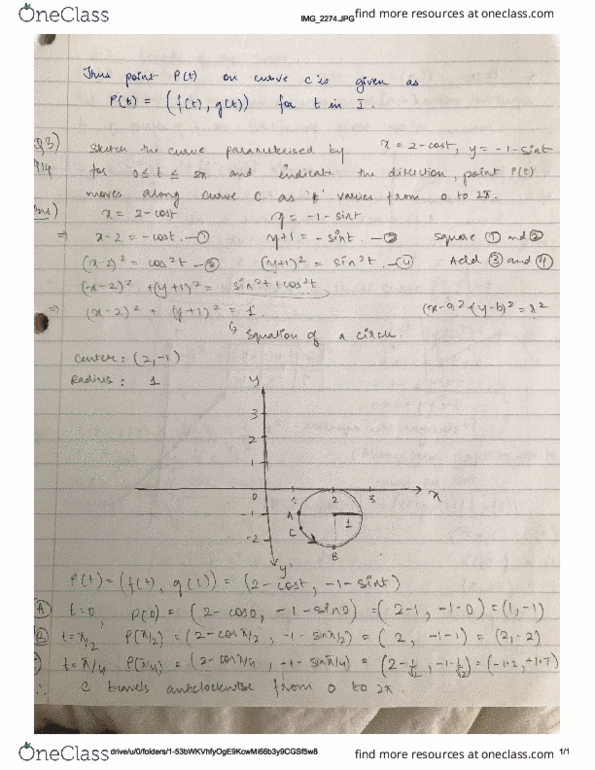 OneClass
IMG_2274.JPG
find more resources at oneclass.com
Thus point P(t) on curve C is given as
P(t) = (f(t), g(t)) for t in I.
Q3) Sketch the curve parameterised by x = 2-cost, y = -1-sint
914 for 0≤t≤2π and indicate the direction, point P(t)
moves along curve C as 't' varies from 0 to 2π.
Ans) x = 2-cost y = -1-sint
⇒ x-2 = -cost. —① y+1 = -sint. —② Square ① and ②
(x-2)² = cos²t —③ (y+1)² = sin²t —④ Add ③ and ④
(x-2)² + (y+1)² = sin²t + cos²t
⇒ (x-2)² + (y+1)² = 1. (x-a)²+(y-b)² = r²
↳ Equation of a circle.
Center : (2,-1)
Radius : 1
y
3
2
1
0 1 2 3 x
-1 A 1
C
-2
B
y'
P(t) = (f(t), g(t)) = (2-cost, -1-sint)
Ⓐ t=0, P(0) = (2-cos0, -1-sin0) = (2-1, -1-0) = (1,-1)
Ⓑ t=π/2 P(π/2) = (2-cosπ/2, -1-sinπ/2) = (2, -1-1) = (2,-2)
t=π/4 P(π/4) = (2-cosπ/4, -1-sinπ/4) = (2-1/√2, -1-1/√2) = (-1.2, -1.7)
∴ C travels anticlockwise from 0 to 2π.
OneClass
drive/u/0/folders/1-53bWKVhfyOgE9KcwMi66b3y9CGSf5w8
1/1
find more resources at oneclass.com